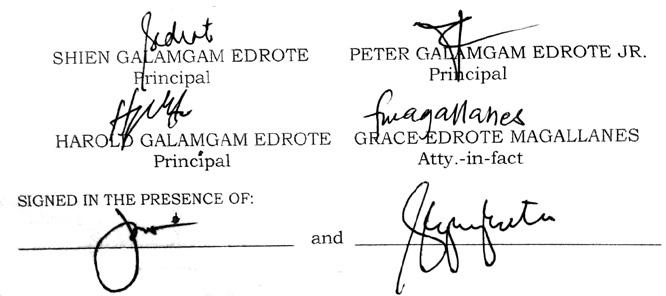 SHIEN GALAMGAM EDROTE
Principal
PETER GALAMGAM EDROTE JR.
Principal
HAROLD GALAMGAM EDROTE
Principal
GRACE EDROTE MAGALLANES
Atty.-in-fact
SIGNED IN THE PRESENCE OF:
and